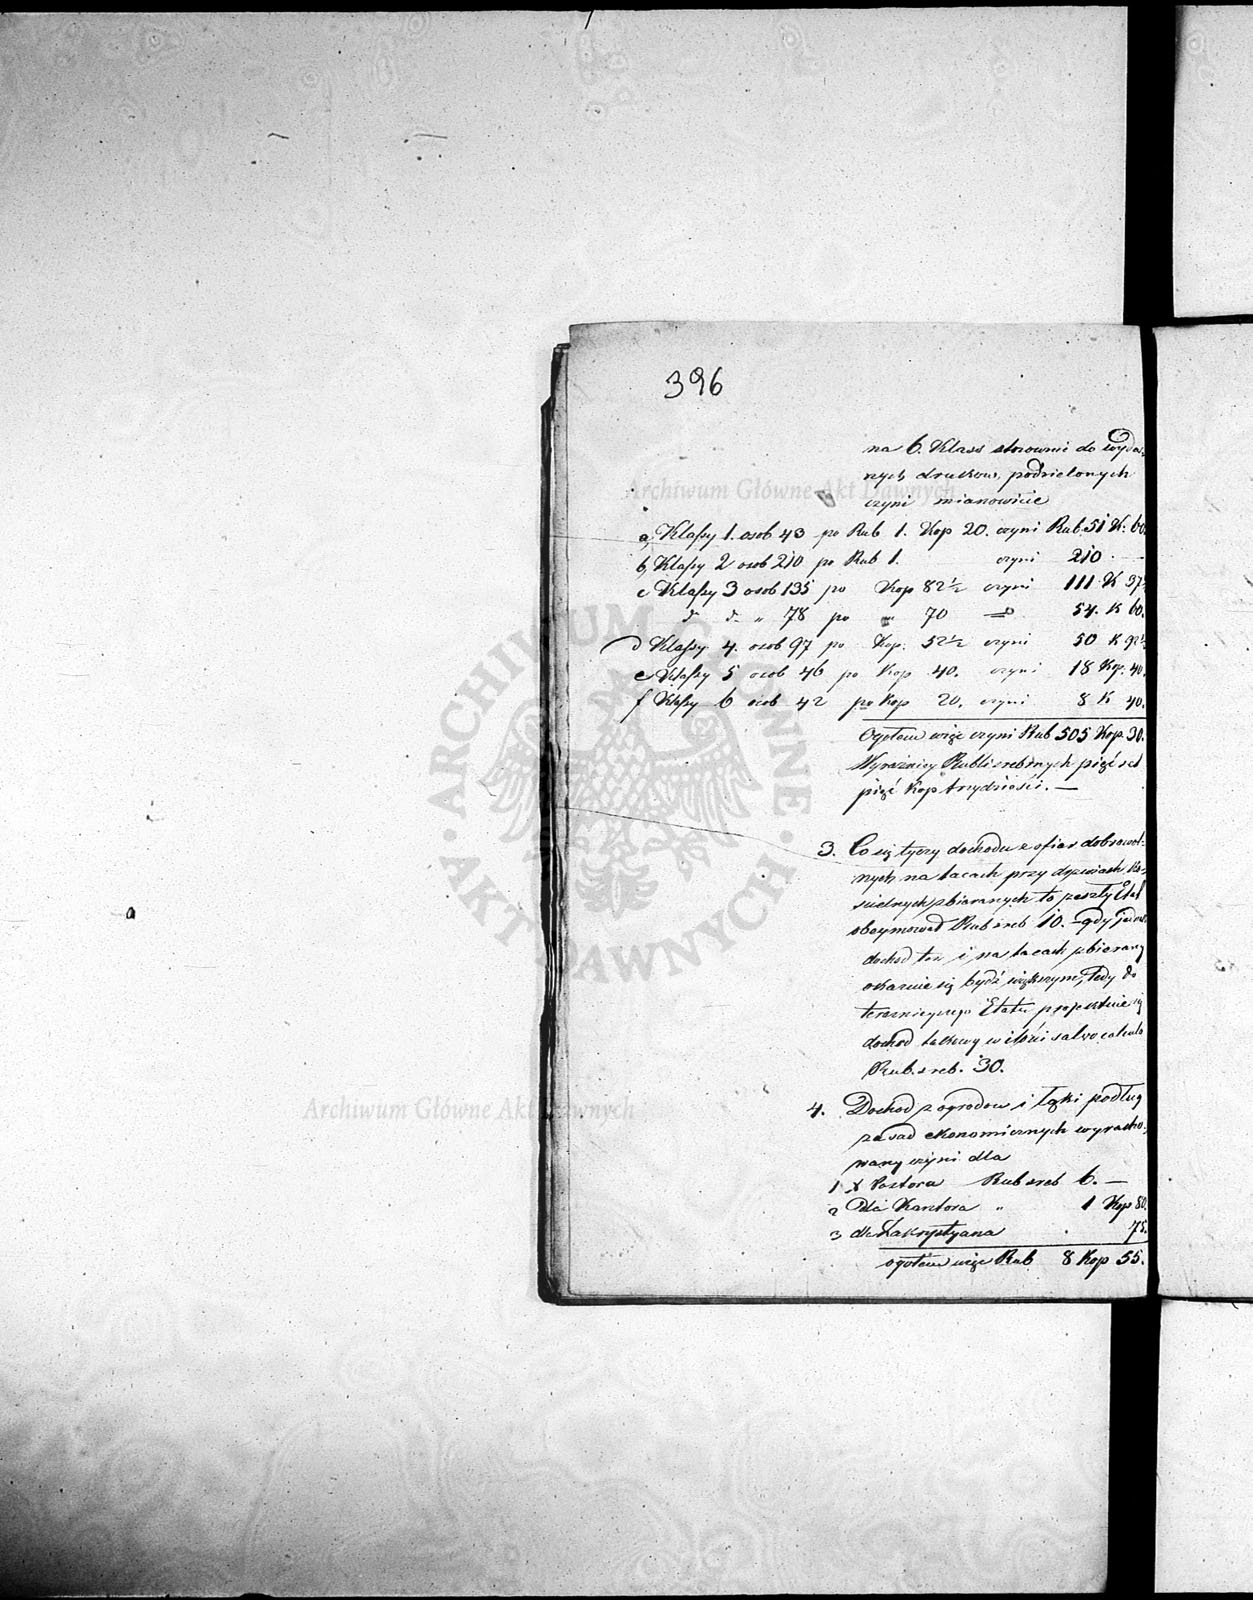 396
na 6. Klass stosownie do wyda-
nych druków, podzielonych
czyni mianowicie
a, Klassy 1. osob 43 po Rub 1. Kop 20. czyni Rub. 51 K. 60.
b, Klassy 2 osob 210 po Rub 1. czyni 210 -
c Klassy 3 osob 135 po Kop 82½ czyni 111 K 37½
do do " 78 po " 70 54. K 60.
d Klassy 4. osob 97 po Kop. 52½ czyni 50 K 92½
e Klassy 5 osob 46 po Kop 40. czyni 18 Kop. 40.
f Klassy 6 osob 42 po Kop 20. czyni 8 K 40.
Ogołem więc czyni Rub 505 Kop. 30.
Wyraźniey Rubli srebrnych pięćset
pięć Kop trzydzieści. —
3. Co się tyczy dochodu z ofiar dobrowol-
nych na tacach przy drzwiach Ko-
scielnych zbieranych to przeszły Etat
obeymował Rub sreb 10. – gdy jedna
dochod ten i na tacach zbierany
okazuie się bydź większym, tedy do
teraznieyszego Etatu
dochod takowy w ilości salvo calculo
Rub. sreb. 30.
4. Dochod z ogrodow i łąki podług
zasad ekonomicznych wyracho-
wany czyni dla
1 X Pastora Rub sreb 6. —
2 dla Kantora " 1 Kop 80.
3 dla Zakrystyana 75.
ogołem więc Rub 8 Kop 55.
Archiwum Główne Akt Dawnych
ARCHIWUM GŁÓWNE · AKT DAWNYCH ·
Archiwum Główne Akt Dawnych